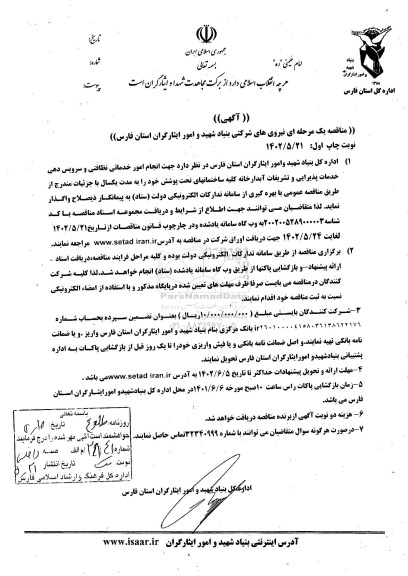 جمهوری اسلامی ایران
بسمه تعالی
تاریخ:
امام خمینی «ره»
هر چه انقلاب اسلامی دارد از برکت مجاهدت شهدا و ایثارگران است
پیوست:
بنیاد شهید
و امور ایثارگران
اداره کل استان فارس
((آگهی))
((مناقصه یک مرحله ای نیروی های شرکتی بنیاد شهید و امور ایثارگران استان فارس))
نوبت چاپ اول: ۱۴۰۲/۵/۲۱
۱) اداره کل بنیاد شهید وامور ایثارگران استان فارس در نظر دارد جهت انجام امور خدماتی نظافتی و سرویس دهی
خدمات پذیرایی و تشریفات آبدارخانه کلیه ساختمانهای تحت پوشش خود را به مدت یکسال با جزئیات مندرج از
طریق مناقصه عمومی با بهره گیری از سامانه تدارکات الکترونیکی دولت (ستاد) به پیمانکار ذیصلاح واگذار
نماید. لذا متقاضیان می توانند جهت اطلاع از شرایط و دریافت مجموعه اسناد مناقصه با کد
شماره ۲۰۰۲۰۰۵۲۸۹۰۰۰۰۰۳ به وب گاه سامانه یادشده ودر چارچوب قانون مناقصات ازتاریخ ۱۴۰۲/۵/۲۱
لغایت ۱۴۰۲/۵/۲۴ جهت دریافت اوراق شرکت در مناقصه به آدرس www.setad iran.ir مراجعه نمایند.
۲) برگزاری مناقصه از طریق سامانه تدارکات الکترونیکی دولت بوده و کلیه مراحل فرایند مناقصه،دریافت اسناد
ارائه پیشنهاد– و بازگشایی پاکتها از طریق وب گاه سامانه یادشده (ستاد) انجام خواهدشد.لذا کلیه شرکت
کنندگان درمناقصه می بایست صرفا ظرف مهلت های تعیین شده درپایگاه مذکور و با استفاده از امضاء الکترونیکی
نسبت به ثبت مناقصه خود اقدام نمایند.
۳–شرکت کنندگان بایستی مبلغ (۱۰/۰۰۰/۰۰۰/۰۰۰ریال) بعنوان تضمین سپرده بحساب شماره
بانک مرکزی بنام بنیاد شهید و امور ایثارگران استان فارس واریز ،و یا ضمانت
نامه بانکی تهیه نمایند.و اصل ضمانت نامه بانکی و یا فیش واریزی خودرا تا یک روز قبل از بازگشایی پاکات به اداره
پشتیبانی بنیادشهیدو امورایثارگران استان فارس تحویل نمایند.
۴–مهلت ارائه و تحویل پیشنهادات حداکثر تا تاریخ ۱۴۰۲/۶/۵ به آدرس www.setad iran.ir می باشد.
۵–زمان بازگشایی پاکات راس ساعت ۱۰صبح مورخه ۱۴۰۲/۶/۶ در محل اداره کل بنیادشهیدو امورایثارگران استان
فارس می باشد.
۶– هزینه دو نوبت آگهی ازبرنده مناقصه دریافت خواهد شد.
۷–درصورت هرگونه سوال متقاضیان می توانند با شماره ۳۲۳۴۰۹۹۹ تماس حاصل نمایند.
باسمه تعالی
روزنامه طلوع تاریخ
خواهشمند است آگهی مهر شده را درج فرمایند
شماره م الف
نوبت تاریخ انتشار
اداره کل فرهنگ و ارشاد اسلامی فارس
اداره کل بنیاد شهید و امور ایثارگران استان فارس
آدرس اینترنتی بنیاد شهید و امور ایثارگران www.isaar.ir